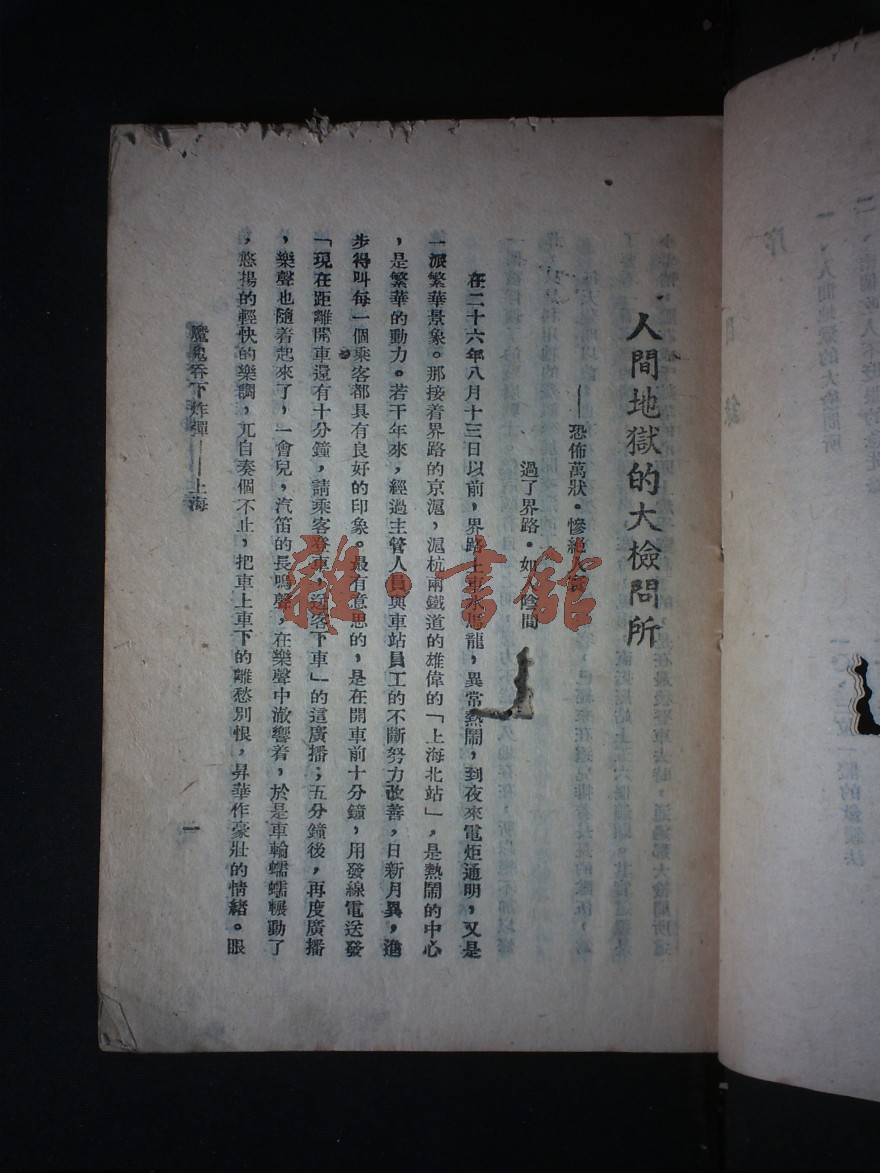 人間地獄的大檢問所
——恐佈萬狀·慘絕人
過了界路·如入陰間
在二十六年八月十三日以前，界路上車水馬龍，異常熱鬧，到夜來電炬通明，又是
一派繁華景象。那接着界路的京滬，滬杭兩鐵道的雄偉的「上海北站」，是熱鬧的中心
，是繁華的動力。若干年來，經過主管人員與車站員工的不斷努力改善，日新月異，進
步得叫每一個乘客都具有良好的印象。最有意思的，是在開車前十分鐘，用發線電送發
「現在距離開車還有十分鐘，請乘客登車，送客下車」的這廣播；五分鐘後，再度廣播
，樂聲也隨着起來了，一會兒，汽笛的長鳴聲，在樂聲中激響着，於是車輪蠕蠕輾動了
，悠揚的輕快的樂調，兀自奏個不止，把車上車下的離愁別恨，昇華作豪壯的情緒。眼
魔鬼吞下炸彈——上海
一
雜·書館